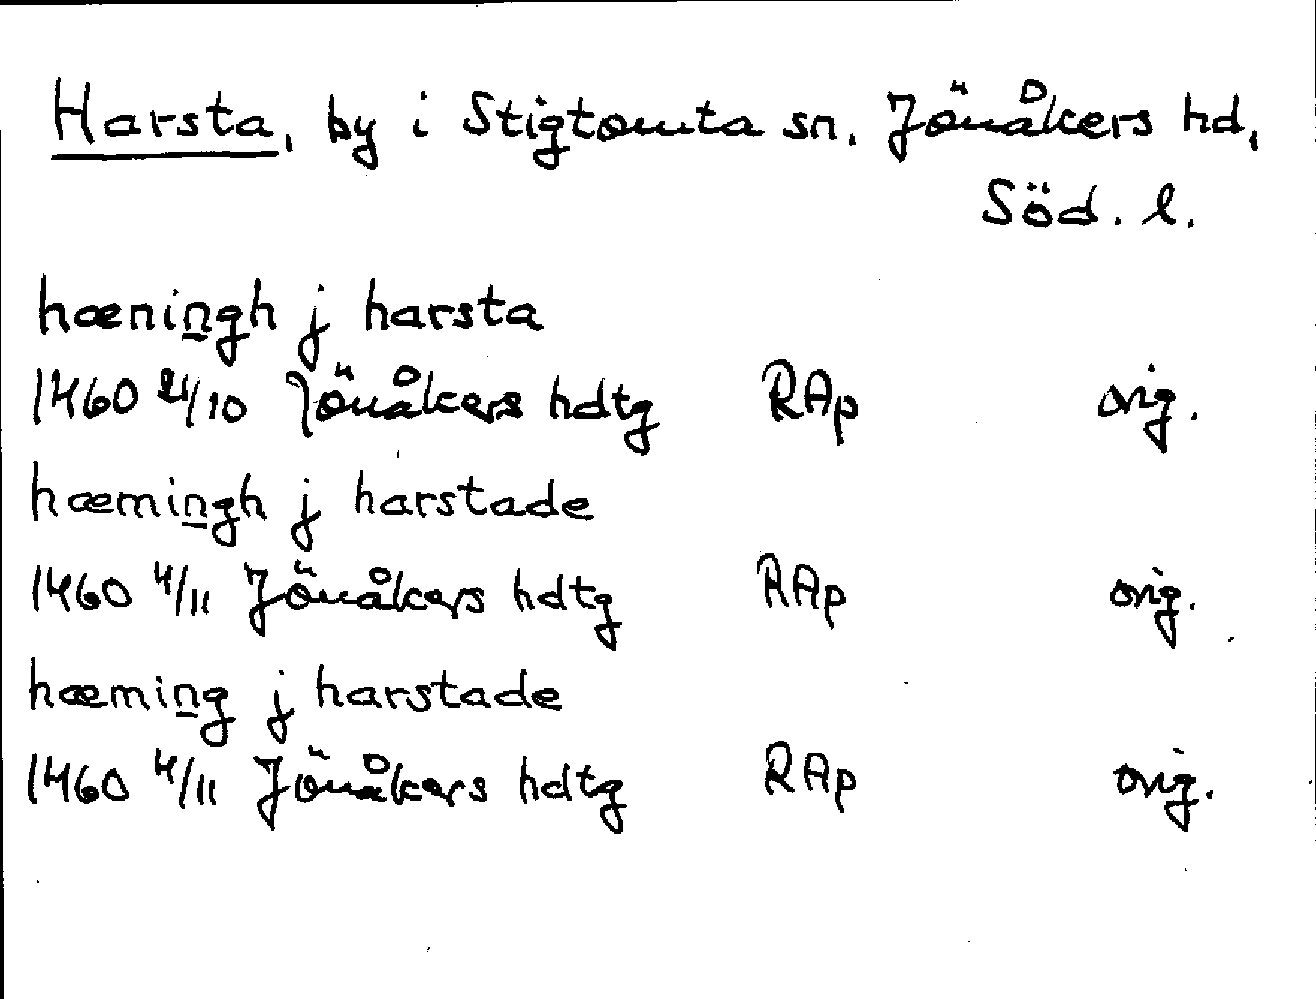 Harsta, by i Stigtomta sn. Jönåkers hd,
Söd. l.
hæningh j harsta
1460 21/10 Jönåkers hdtg RAp orig.
hæmingh j harstade
1460 4/11 Jönåkers hdtg RAp orig.
hæming j harstade
1460 4/11 Jönåkers hdtg RAp orig.